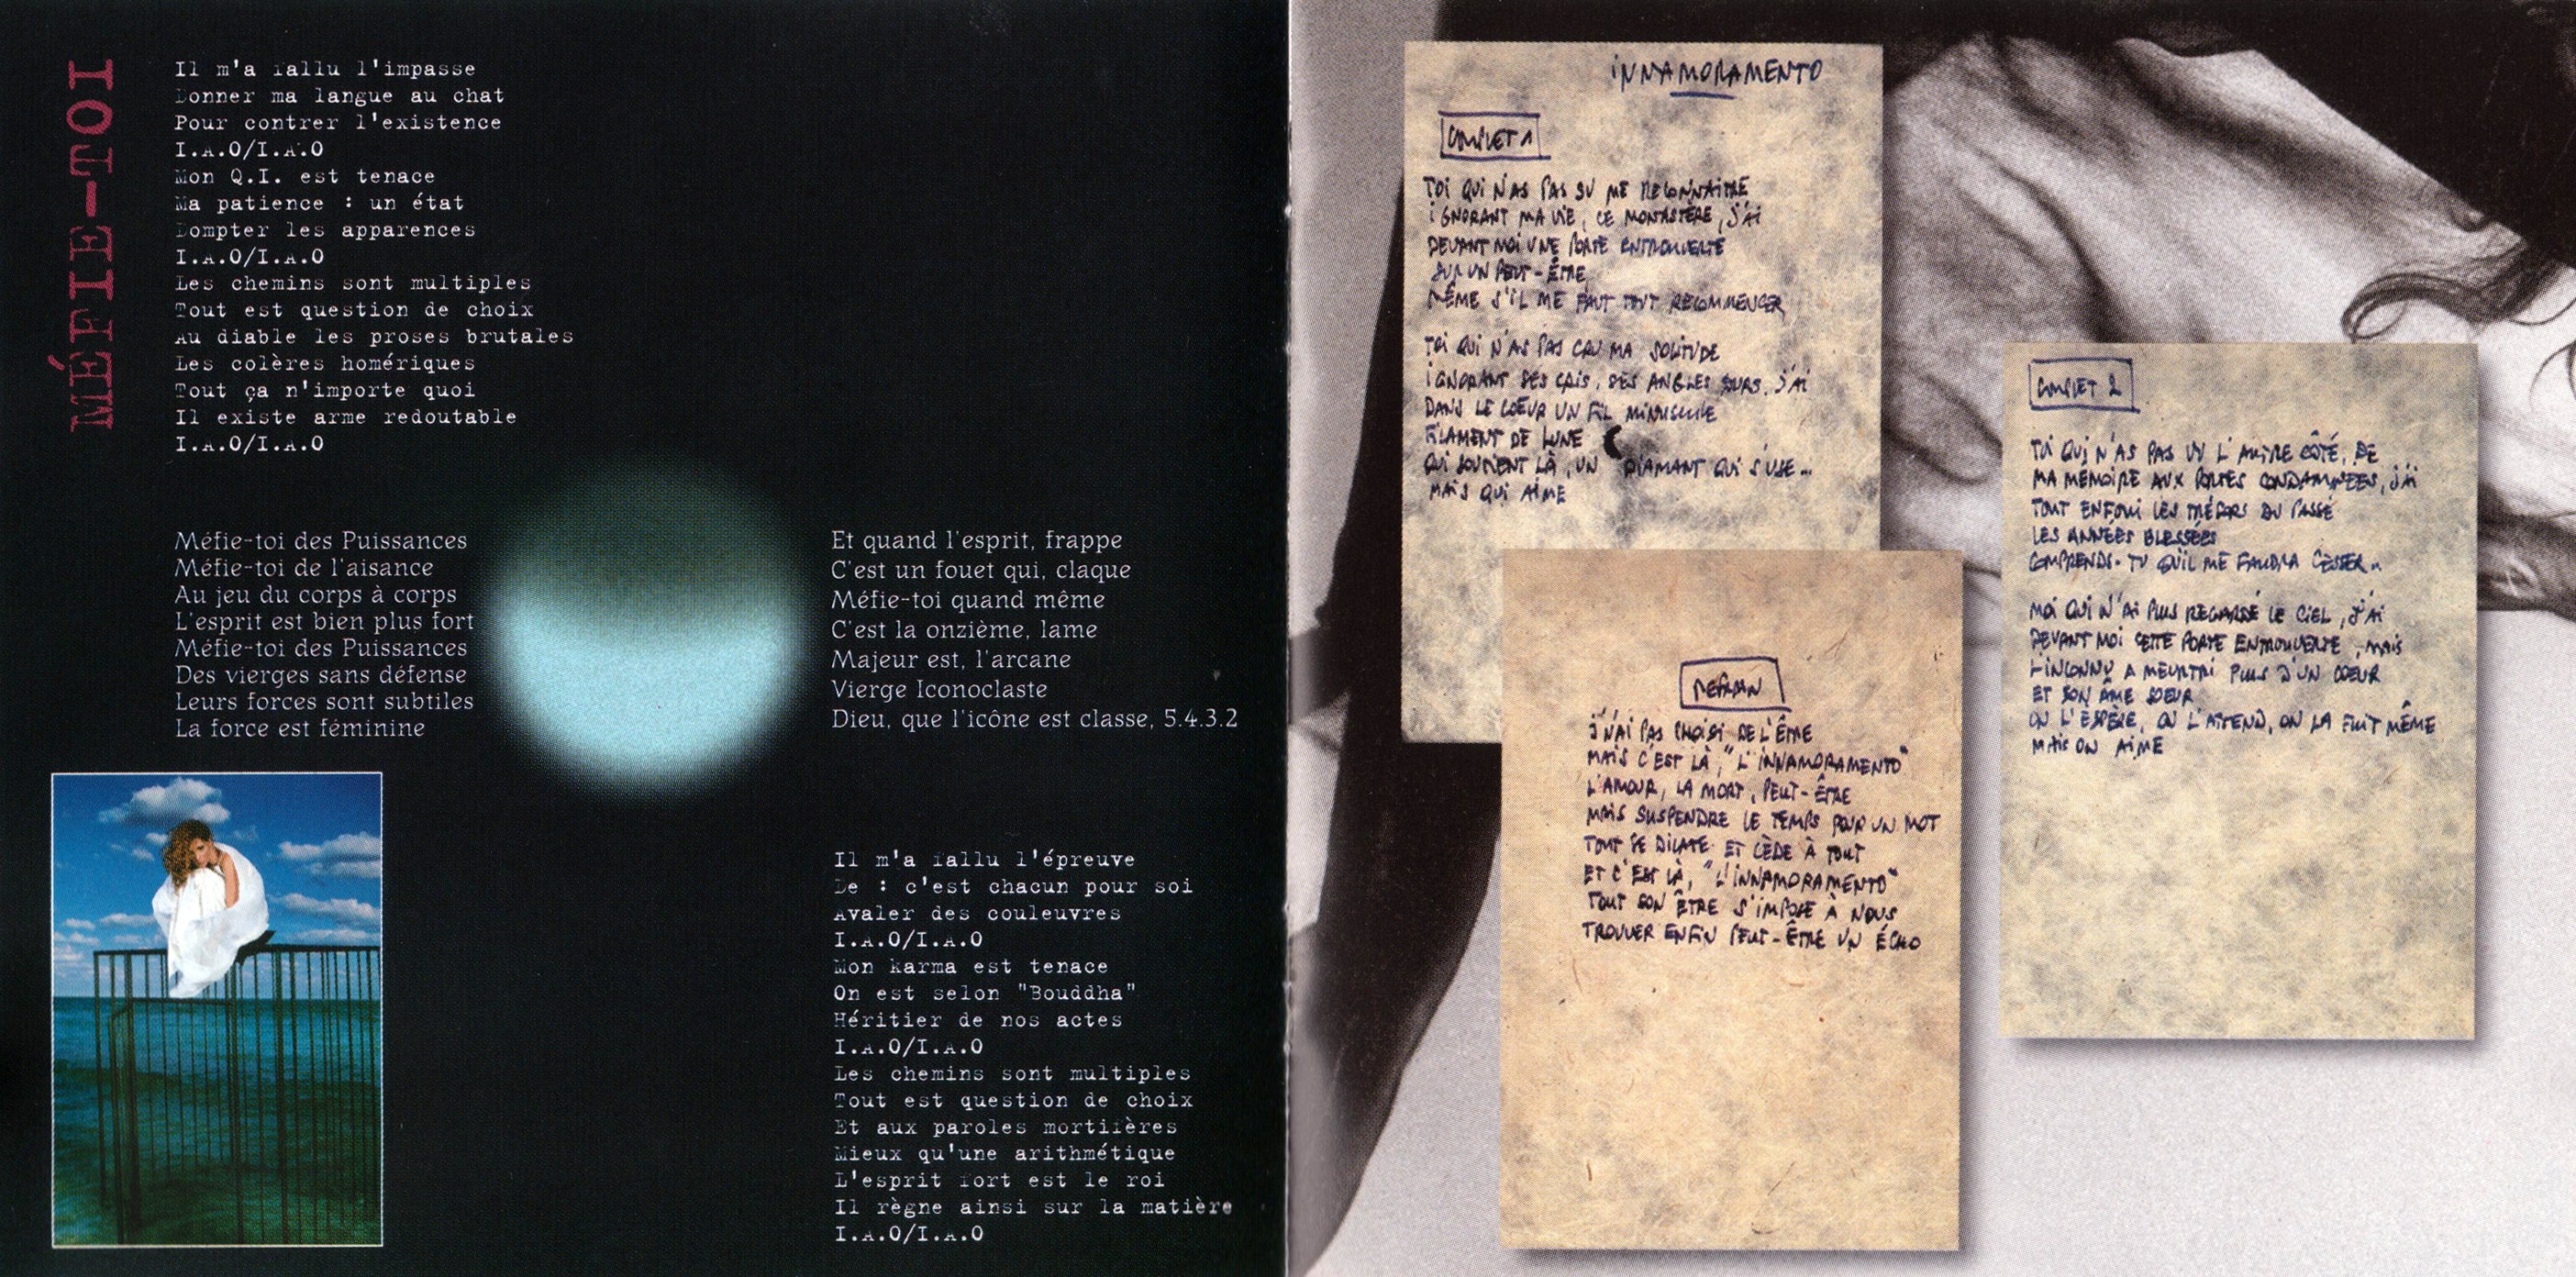 MÉFIE-TOI
Il m'a fallu l'impasse
Donner ma langue au chat
Pour contrer l'existence
I.A.O/I.A.O
Mon Q.I. est tenace
Ma patience : un état
Dompter les apparences
I.A.O/I.A.O
Les chemins sont multiples
Tout est question de choix
Au diable les proses brutales
Les colères homériques
Tout ça n'importe quoi
Il existe arme redoutable
I.A.O/I.A.O
Méfie-toi des Puissances
Méfie-toi de l'aisance
Au jeu du corps à corps
L'esprit est bien plus fort
Méfie-toi des Puissances
Des vierges sans défense
Leurs forces sont subtiles
La force est féminine
Et quand l'esprit, frappe
C'est un fouet qui, claque
Méfie-toi quand même
C'est la onzième, lame
Majeur est, l'arcane
Vierge Iconoclaste
Dieu, que l'icône est classe, 5.4.3.2
Il m'a fallu l'épreuve
De : c'est chacun pour soi
Avaler des couleuvres
I.A.O/I.A.O
Mon karma est tenace
On est selon "Bouddha"
Héritier de nos actes
I.A.O/I.A.O
Les chemins sont multiples
Tout est question de choix
Et aux paroles mortifères
Mieux qu'une arithmétique
L'esprit fort est le roi
Il règne ainsi sur la matière
I.A.O/I.A.O
INNAMORAMENTO
COUPLET 1
TOI QUI N'AS PAS SU ME RECONNAITRE
IGNORANT MA VIE, CE MONASTÈRE, J'AI
DEVANT MOI UNE PORTE ENTROUVERTE
SUR UN PEUT-ÊTRE
MÊME S'IL ME FAUT TOUT RECOMMENCER
TOI QUI N'AS PAS CRU MA SOLITUDE
IGNORANT SES CRIS, SES ANGLES DURS. J'AI
DANS LE COEUR UN FIL MINUSCULE
FILAMENT DE LUNE
QUI SOUTIENT LÀ, UN DIAMANT QUI S'USE...
MAIS QUI AIME
REFRAIN
J'N'AI PAS CHOISI DE L'ÊTRE
MAIS C'EST LÀ, "L'INNAMORAMENTO"
L'AMOUR, LA MORT, PEUT-ÊTRE
MAIS SUSPENDRE LE TEMPS POUR UN MOT
TOUT SE DILATE ET CÈDE À TOUT
ET C'EST LÀ, "L'INNAMORAMENTO"
TOUT SON ÊTRE S'IMPOSE À NOUS
TROUVER ENFIN PEUT-ÊTRE UN ÉCHO
COUPLET 2
TOI QUI N'AS PAS VU L'AUTRE CÔTÉ, DE
MA MÉMOIRE AUX PORTES CONDAMNÉES, J'AI
TOUT ENFOUI LES TRÉSORS DU PASSÉ
LES ANNÉES BLESSÉES
COMPRENDS-TU QU'IL ME FAUDRA CESSER..
MOI QUI N'AI PLUS REGARDÉ LE CIEL, J'AI
DEVANT MOI CETTE PORTE ENTROUVERTE, MAIS
L'INCONNU A MEURTRI PLUS D'UN COEUR
ET SON ÂME SOEUR
ON L'ESPÈRE, ON L'ATTEND, ON LA FUIT MÊME
MAIS ON AIME